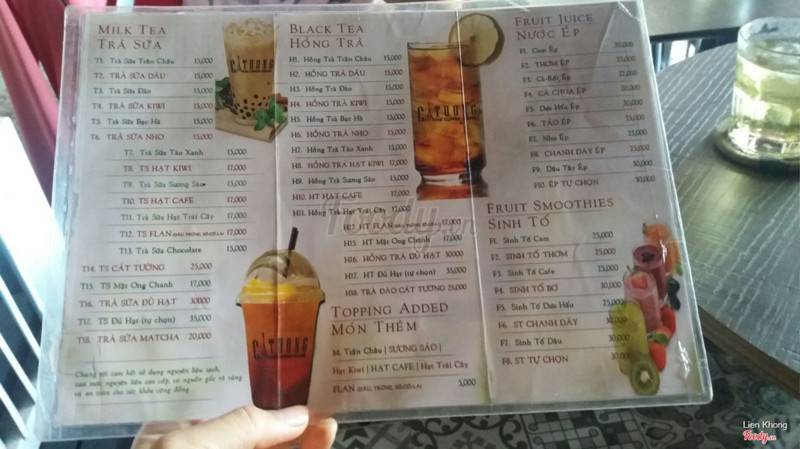 MILK TEA
TRÀ SỮA
T1. Trà Sữa Trân Châu 15,000
T2. TRÀ SỮA DÂU 15,000
T3. Trà Sữa Đào 15,000
T4. TRÀ SỮA KIWI 15,000
T5. Trà Sữa Bạc Hà 15,000
T6. TRÀ SỮA NHO 15,000
T7. Trà Sữa Táo Xanh 15,000
T8. TS HẠT KIWI 17,000
T9. Trà Sữa Sương Sáo 15,000
T10. TS HẠT CAFE 17,000
T11. Trà Sữa Hạt Trái Cây 17,000
T12. TS FLAN (DÂU, TRỨNG, SÔ-CÔ-LA) 17,000
T13. Trà Sữa Chocolate 15,000
T14. TS CÁT TƯỜNG 25,000
T15. TS Mật Ong Chanh 17,000
T16. TRÀ SỮA ĐỦ HẠT 30000
T17. TS Đủ Hạt (tự chọn) 35,000
T18. TRÀ SỮA MATCHA 20,000
Chúng tôi cam kết sử dụng nguyên liệu sạch,
tươi mới, nguyên liệu cao cấp, có nguồn gốc rõ ràng
và an toàn cho sức khỏe cộng đồng.
BLACK TEA
HỒNG TRÀ
H1. Hồng Trà Trân Châu 15,000
H2. HỒNG TRÀ DÂU 15,000
H3. Hồng Trà Đào 15,000
H4. HỒNG TRÀ KIWI 15,000
H5. Hồng Trà Bạc Hà 15,000
H6. HỒNG TRÀ NHO 15,000
H7. Hồng Trà Táo Xanh 15,000
H8. HỒNG TRÀ HẠT KIWI 17,000
H9. Hồng Trà Sương Sáo 15,000
H10. HT HẠT CAFE 17,000
H11. Hồng Trà Hạt Trái Cây 17,000
H12. HT FLAN (DÂU, TRỨNG, SÔ-CÔ-LA) 17,000
H15. HT Mật Ong Chanh 17,000
H16. HỒNG TRÀ ĐỦ HẠT 30000
H17. HT Đủ Hạt (tự chọn) 35,000
H18. TRÀ ĐÀO CÁT TƯỜNG 25,000
TOPPING ADDED
MÓN THÊM
M. Trân Châu | SƯƠNG SÁO |
Hạt Kiwi | HẠT CAFE | Hạt Trái Cây
FLAN (DÂU, TRỨNG, SÔ-CÔ-LA) 5,000
FRUIT JUICE
NƯỚC ÉP
F1. Cam Ép
F2. THƠM ÉP
F3. Cà-Rốt Ép
F4. CÀ CHUA ÉP
F5. Dưa Hấu Ép
F6. TÁO ÉP
F7. Nho Ép
F8. CHANH DÂY ÉP 30,000
F9. Dâu Tây Ép 30,000
F10. ÉP TỰ CHỌN 30,000
FRUIT SMOOTHIES
SINH TỐ
F1. Sinh Tố Cam 25,000
F2. SINH TỐ THƠM 25,000
F3. Sinh Tố Cafe 25,000
F4. SINH TỐ BƠ
F5. Sinh Tố Dưa Hấu
F6. ST CHANH DÂY
F7. Sinh Tố Dâu
F8. ST TỰ CHỌN
CÁTUONG
CÁTUONG
CÁTUONG
Foody.vn
Lien Khong
Foody.vn